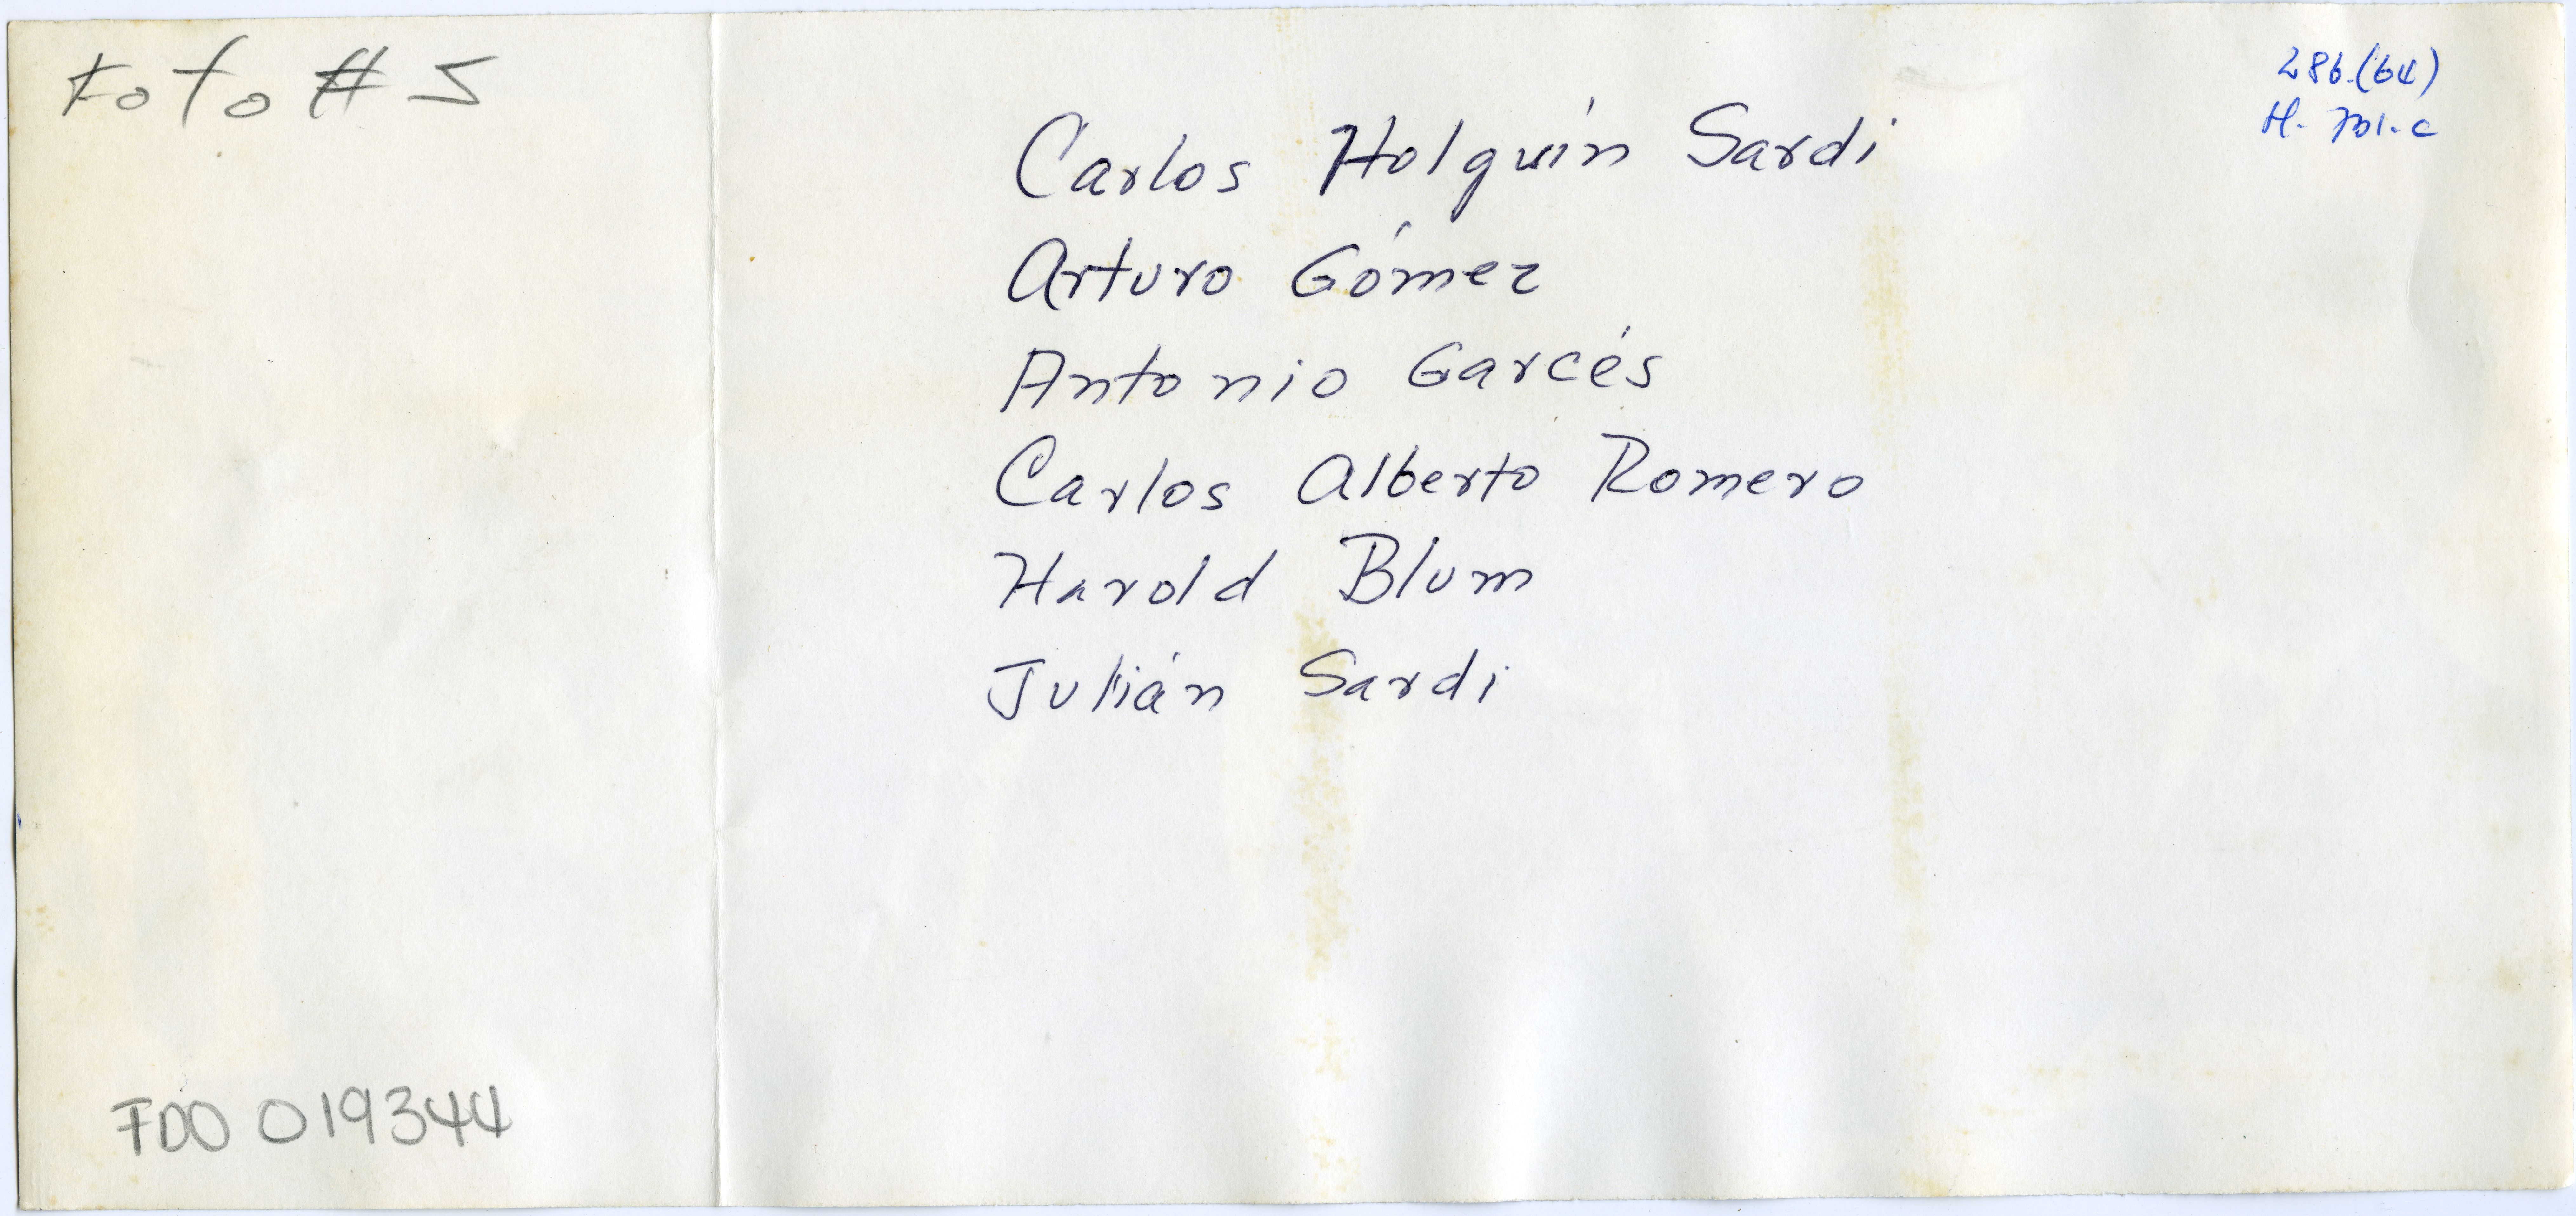 Foto # 5
286.(64)
H.
Carlos Holguín Sardi
Arturo Gómez
Antonio Garcés
Carlos Alberto Romero
Harold Blum
Julián Sardi
FDO 019344